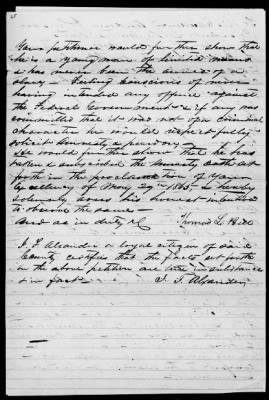 Your petitioner would further show that
he is a young man of limited means
& has never been the owner of a
slave. Feeling conscious of never
having intended any offence against
the Federal Government & if any was
committed that it was not of a criminal
character he would respectfully
solicit Amnesty & pardon
He would further show that he has
taken & subscribed the Amnesty oath set
forth in the proclamation of Your
Excellency of May 29th 1865 & hereby
solemnly avows his honest intention
to observe the same
And as in duty &c
Thomas L.
J. F. Alexander a loyal citizen of said
County certifies that the facts set forth
in the above petition are true in substance
& in fact
J. F. Alexander